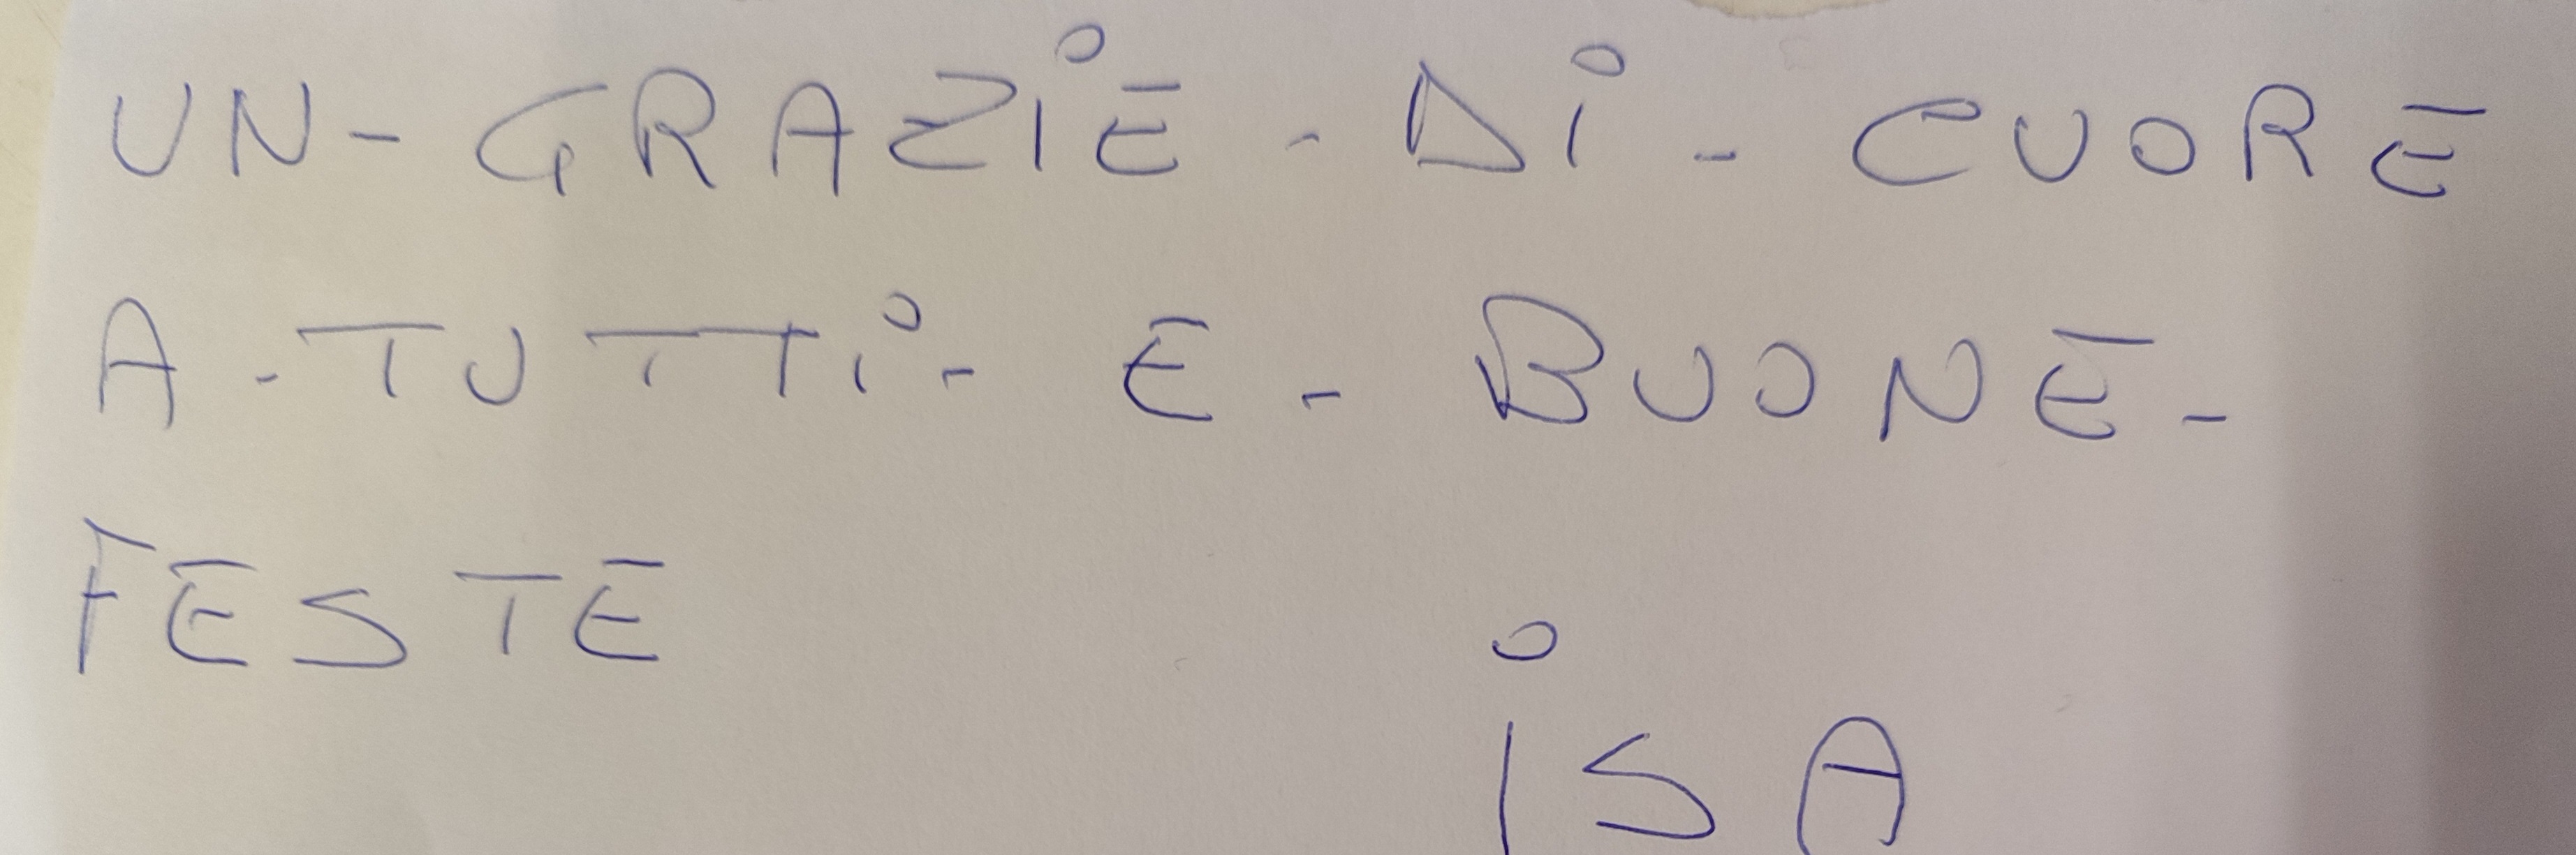 UN - GRAZIE - DI - CUORE
A - TUTTI - E - BUONE -
FESTE
ISA